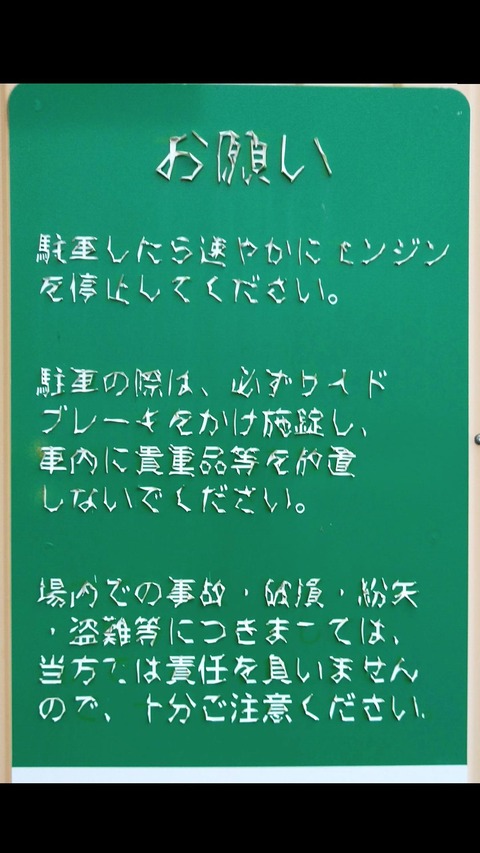 お願い
駐車したら速やかにエンジン
を停止してください。
駐車の際は、必ずサイド
ブレーキをかけ施錠し、
車内に貴重品等を放置
しないでください。
場内での事故・破損・紛失
・盗難等につきましては、
当方では責任を負いません
ので、十分ご注意ください。